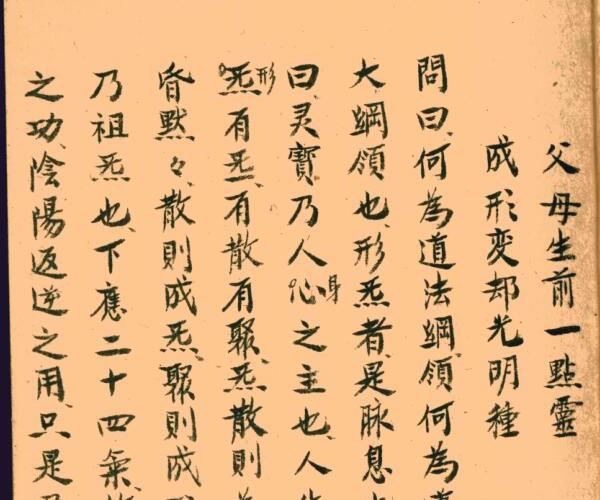 父母生前一點靈
成形変却光明種
問曰何為道法綱領何為
大綱領也形炁者是脉息
曰灵寶乃人心身之主也人
炁形有炁有散有聚炁散則
昏默々散則成炁聚則成
乃祖炁也下應二十四氣
之功陰陽返逆之用只是